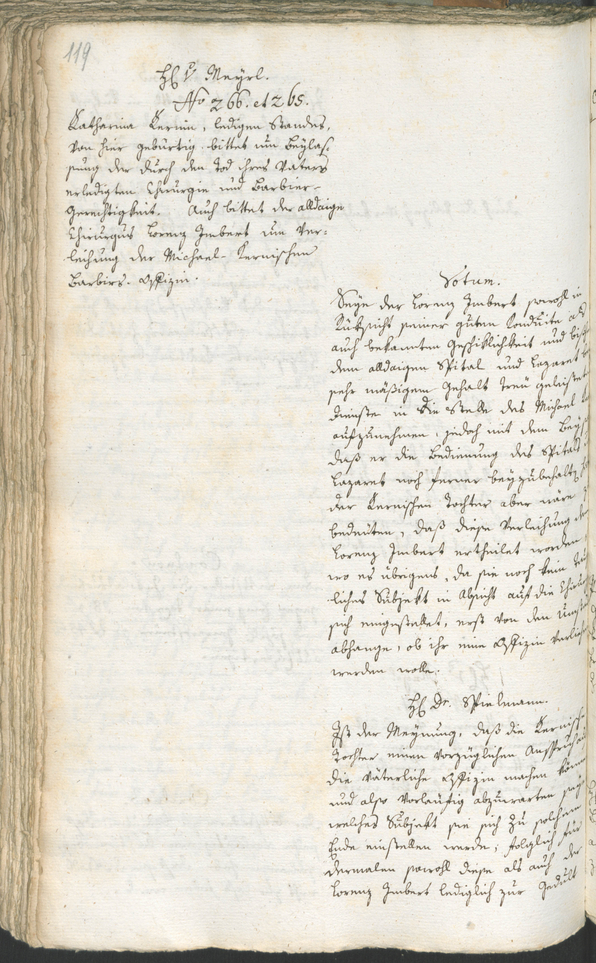 119
H. v. Meyrl.
No 266. et 265.
Katharina Kernin, ledigen Standes,
von hier gebürtig bittet um Beylas-
sung der durch den Tod ihres Vaters
erledigten Chirurgie und Barbier-
Gerechtigkeit. Auch bittet der alldaige
Chirurgus Lorenz Imbert um Ver-
leihung der Michael Kernischen
Barbirs-Offizin.
Votum.
Seye der Lorenz Imbert sowohl in
Rüksicht seiner guten Konduite als
auch bekannten Geschiklichkeit und
dem alldaigen Spital und Lazaret
sehr mäßigem Gehalt treu geleisteten
Dienste in die Stelle des Michael
aufzunehmen, jedoch mit dem
daß er die Bedienung des Spitals
Lazaret noch ferner beyzubehalten
der Kernischen Tochter aber wäre zu
bedeuten, daß diese Verleihung dem
Lorenz Imbert ertheilet worden
wo es übrigens, da sie noch kein
liches Subjekt in Absicht auf die
sich eingestellet, erst von den
abhange, ob ihr eine Offizin verliehen
werden wolle.
H. Dr. Spielmann.
Ist der Meynung, daß die Kernische
Tochter einen vorzüglichen Anspruch auf
die väterliche Offizin machen könne
und also vorläufig abzuwarten seye
welches Subjekt sie sich zu solchem
Ende einstellen werde; folglich für
dermalen sowohl diese als auch der
Lorenz Imbert lediglich zur Gedult